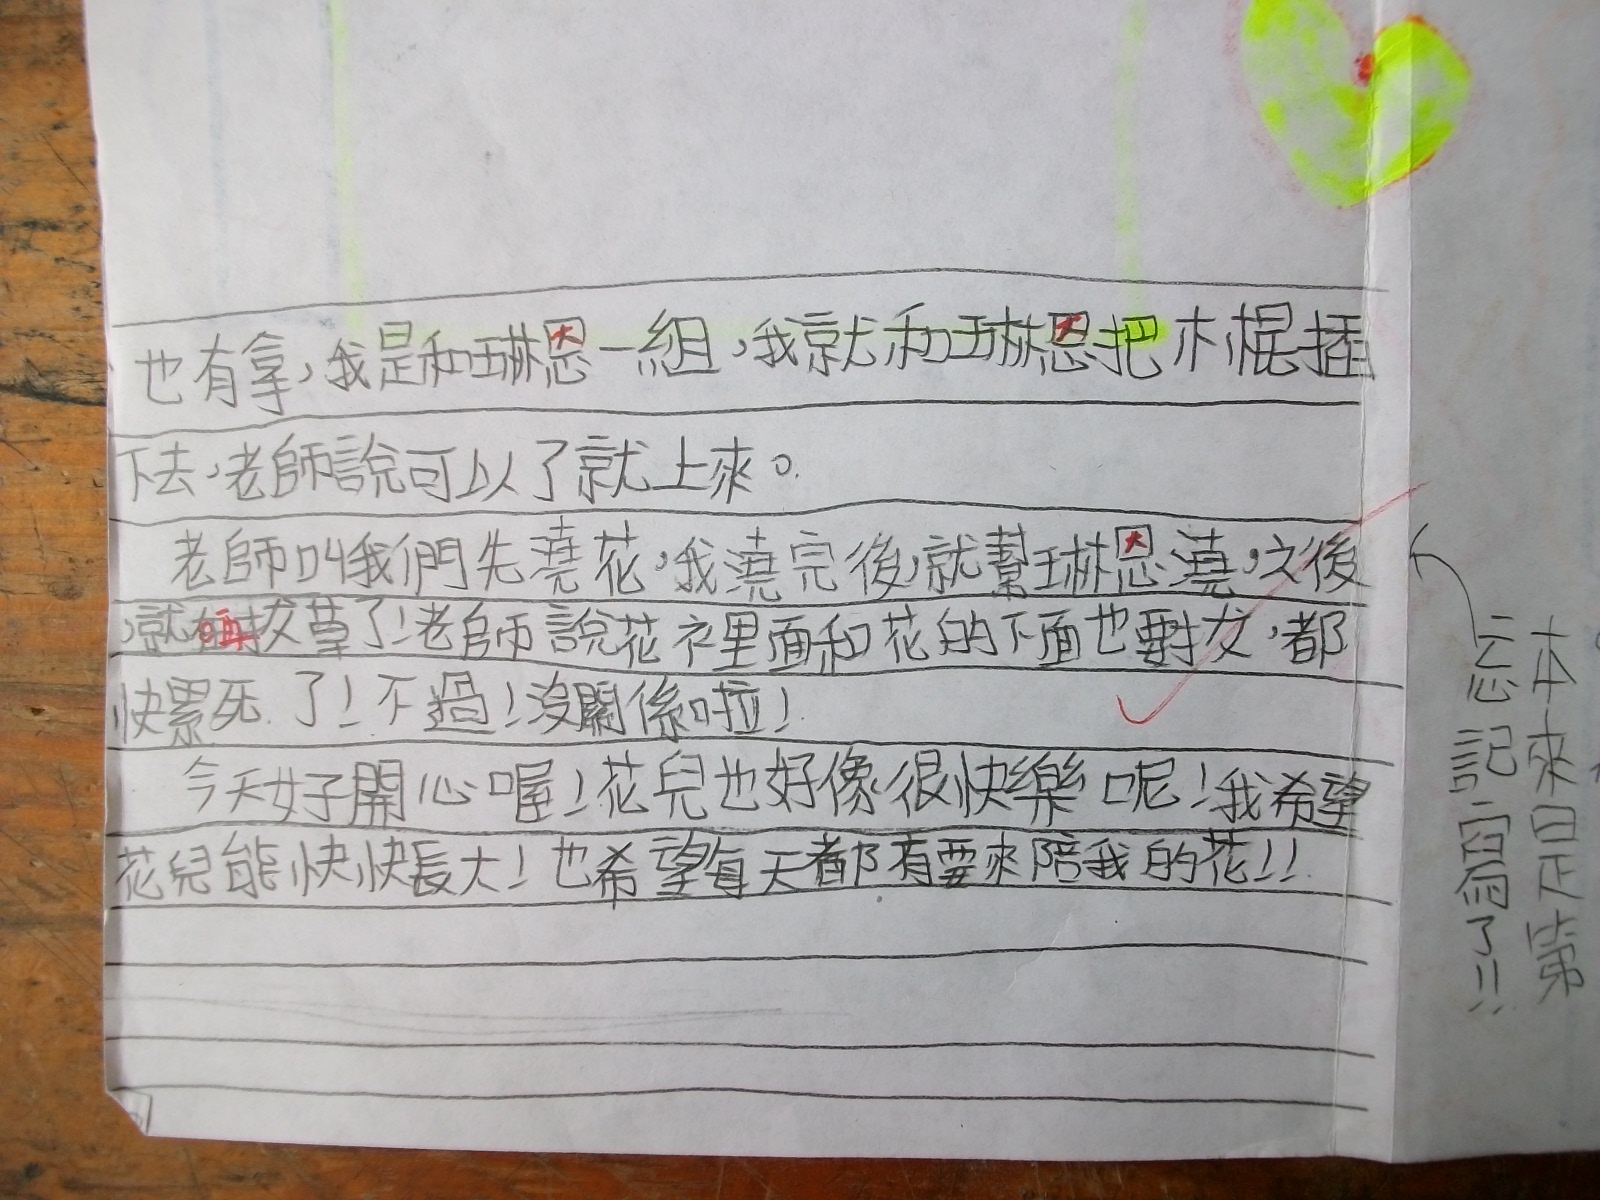 也有拿,我是和琳恩一組,我就和琳恩把木棍插
下去,老師說可以了就上來。
老師叫我們先澆花,我澆完後,就幫琳恩澆,之後
,就再拔草了!老師說花裡面和花的下面也要對女,都
快累死了!不過!沒關係啦!
今天好開心喔!花兒也好像很快樂呢!我希望
花兒能快快長大!也希望每天都有要來陪我的花!!
本來是第
忘記寫了!!